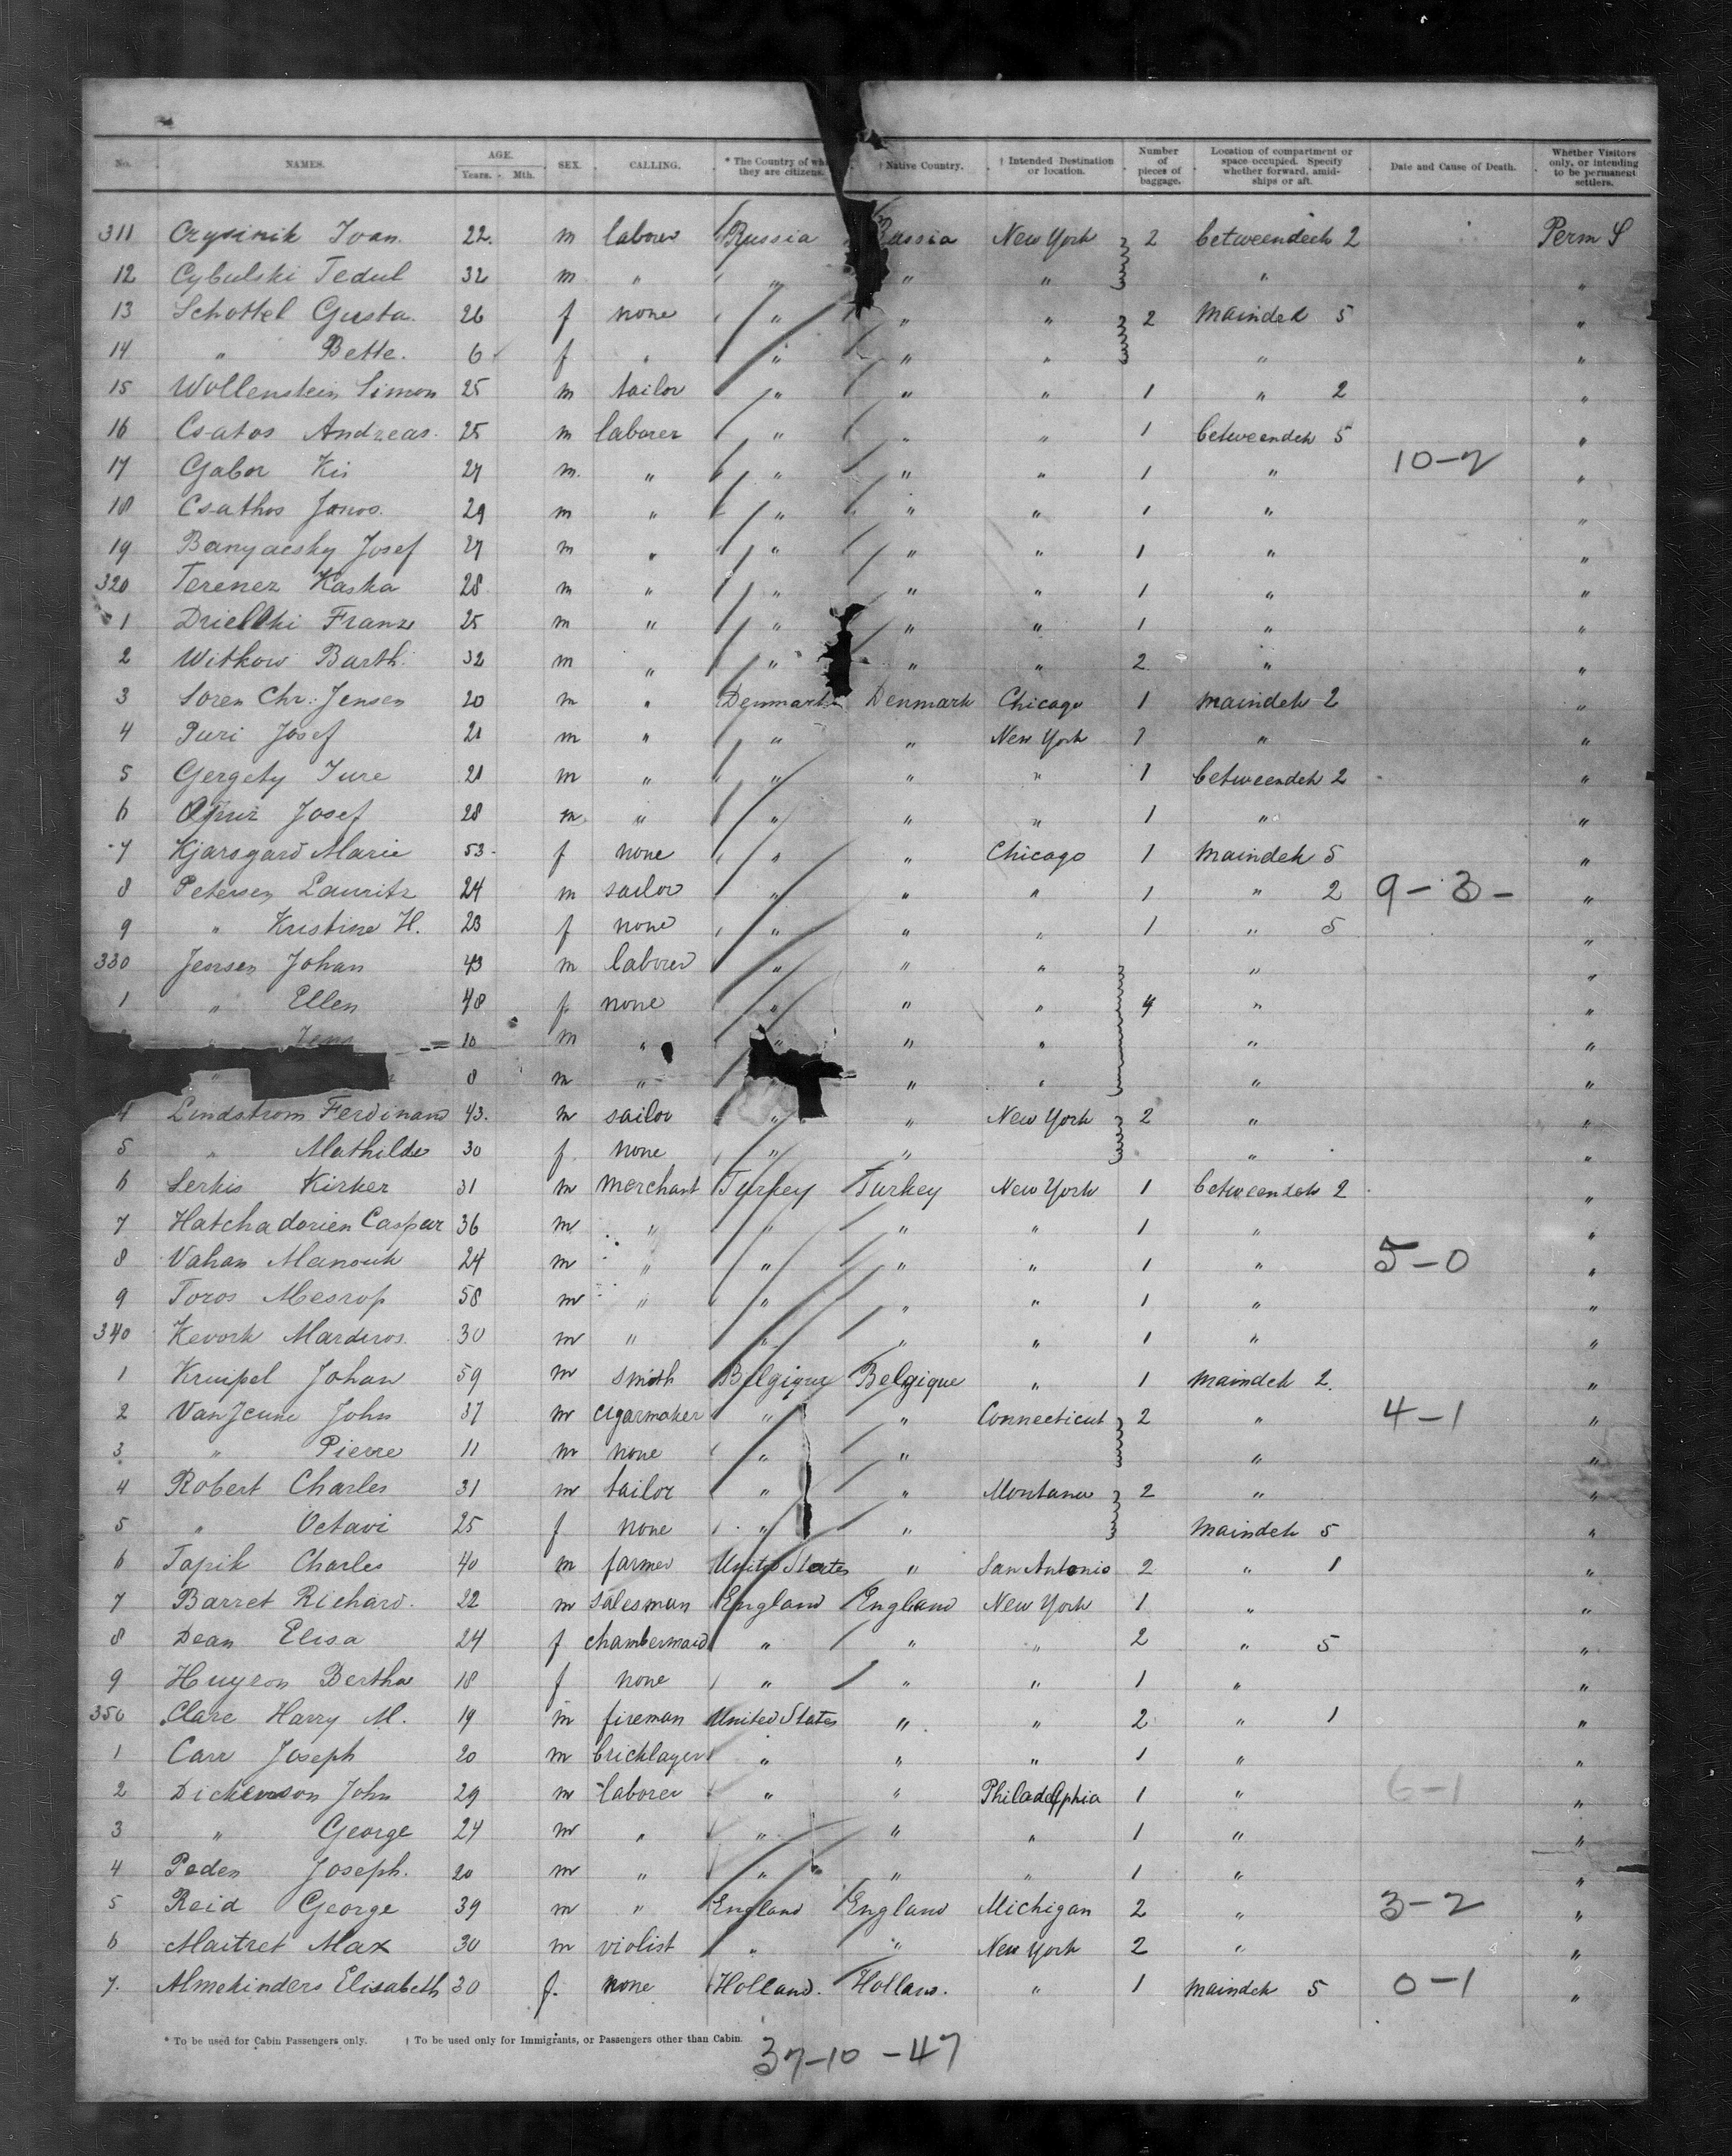 No. NAMES. AGE. Years. Mth. SEX. CALLING. * The Country of wh they are citizens. † Native Country. † Intended Destination or location. Number of pieces of baggage. Location of compartment or space occupied. Specify whether forward, amid-ships or aft. Date and Cause of Death. Whether Visitors only, or intending to be permanent settlers.
311 Ivan. 22. m laborer Russia Russia New York 2 betweendeck 2 Perm S
12 Cybulski Tedul 32 m " " " " " "
13 Schottel Gusta. 26 f none " " " 2 Maindek 5 "
14 " Bette. 6 f " " " " " "
15 Wollenstein Simon 25 m tailor " " " 1 " 2 "
16 Csatos Andreas. 25 m laborer " " " 1 betweendek 5 "
17 Gabor Kis 27 m. " " " " 1 " 10-2 "
18 Csathos Janos. 29 m " " " " 1 " "
19 Banyacsky Josef 27 m " " " " 1 " "
320 Terenez Kaska 28 m " " " " 1 " "
1 Franz 25 m " " " " 1 " "
2 Witkow Barth. 32 m " " " " 2 " "
3 Soren Chr. Jensen 20 m " Denmark Denmark Chicago 1 maindek 2 "
4 Puri Josef 21 m " " " New York 1 " "
5 Gergely Jure 21 m " " " " 1 betweendek 2 "
6 Josef 28 m " " " " 1 " "
7 Kjarsgard Marie 53 f none " " Chicago 1 Maindek 5 "
8 Petersen Lauritz 24 m sailor " " " 1 " 2 9-3- "
9 " Kristine H. 23 f none " " " 1 " 5 "
330 Jensen Johan 43 m laborer " " " " "
1 " Ellen 48 f none " " " 4 " "
" Jens 10 m " " " " " "
" 8 m " " " " "
4 Lindstrom Ferdinand 43. m sailor " " New York 2 " "
5 " Mathilde 30 f none " " " "
6 Serkis Kirker 31 m merchant Turkey Turkey New York 1 betweendek 2 "
7 Hatchadorien Caspar 36 m " " " " 1 " "
8 Vahan Manouk 24 m " " " " 1 " 5-0 "
9 Toros Mesrop 58 m " " " " 1 " "
340 Kevork Marderos. 30 m " " " " 1 " "
1 Kruipel Johan 59 m smith Belgique Belgique " 1 maindek 2. "
2 Van Jeune John 37 m cigarmaker " " Connecticut 2 " 4-1 "
3 " Pierre 11 m none " " " "
4 Robert Charles 31 m tailor " " Montana 2 " "
5 " Octavi 25 f none " " maindek 5 "
6 Tapik Charles 40 m farmer United States " San Antonio 2 " 1 "
7 Barret Richard. 22 m salesman England England New York 1 " "
8 Dean Elisa 24 f chambermaid " " " 2 " 5 "
9 Huyeon Bertha 18 f none " " " 1 " "
350 Clare Harry M. 19 m fireman United States " " 2 " 1 "
1 Carr Joseph 20 m bricklayer " " " 1 " "
2 Dickenson John 29 m laborer " " Philadelphia 1 " 6-1 "
3 " George 24 m " " " " 1 " "
4 Peden Joseph. 20 m " " " " 1 " "
5 Reid George 39 m " England England Michigan 2 " 3-2 "
6 Maitret Max 30 m violist " " New York 2 " "
7. Almekinders Elisabeth 30 f. none Holland. Holland. " 1 maindek 5 0-1 "
* To be used for Cabin Passengers only. † To be used only for Immigrants, or Passengers other than Cabin.
37-10-47